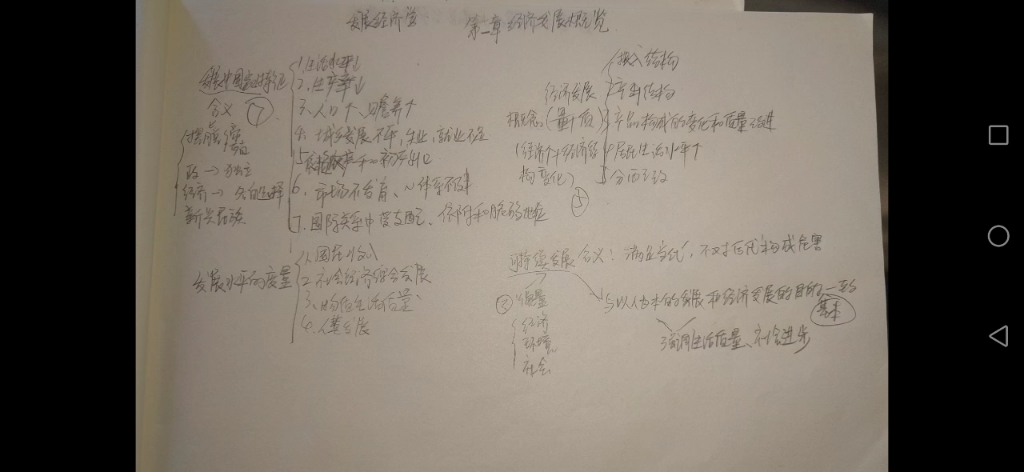 发展经济学 第二章 经济发展概览
发展中国家的特征
含义 ⑦
摆脱
政 → 独立
经济 →
新兴民族
1.生活水平↓
2.生产率↓
3.人口↑、↑
4.发展不平,失业,就业不足
5.和初产出口
6.市场不发育、体系不健
7.国际关系中受支配、依附和脆弱地位
投入结构
经济发展
概念(量+质)
(经济个+经济结
构变化)
2产出结构
3产品构成的变化和质量改进
4居民生活水平↑
5分配
⑤
发展水平的度量
1.国民收入
2.社会经济综合发展
3.物质生活质量
4.人类发展
可持续发展 含义:满足当代,不对后代构成危害
③
经济
环境
社会
与以人为本的发展和经济发展的目的一致
基本
强调生活质量、社会进步